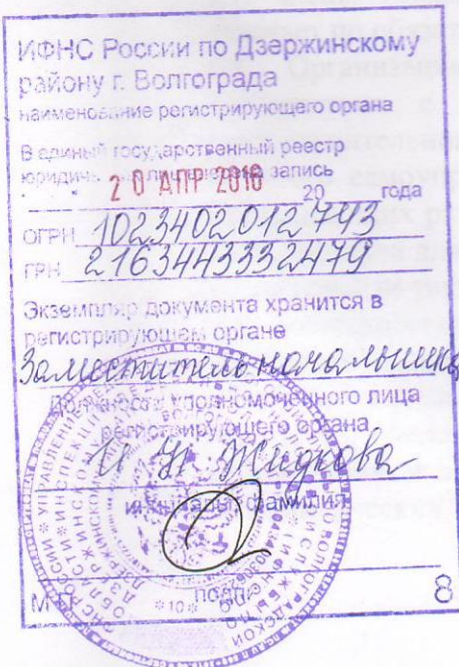 ИФНС России по Дзержинскому
району г. Волгограда
наименование регистрирующего органа
В единый государственный реестр
юридических лиц внесена запись
20 АПР 2016 20 года
ОГРН 1023402012743
ГРН 2163443332479
Экземпляр документа хранится в
регистрирующем органе
Заместитель начальника
должность уполномоченного лица
регистрирующего органа
И Н Жидкова
инициалы, фамилия
подпись
М.П. 8